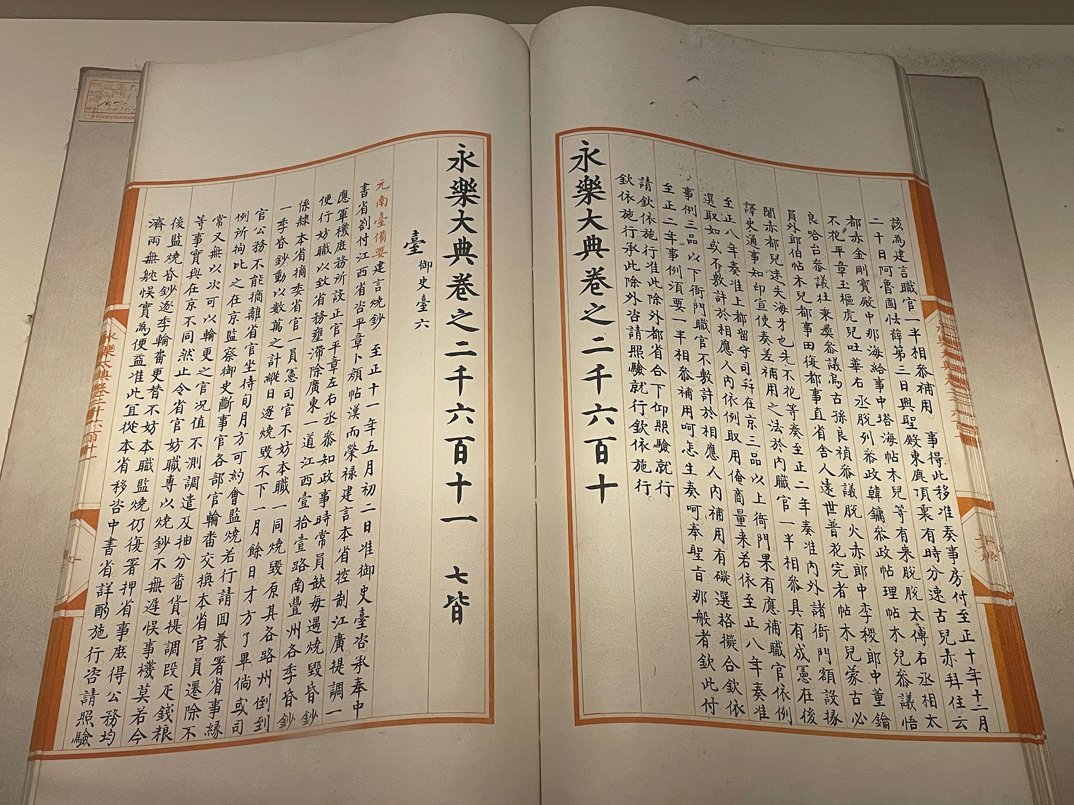 該為建言職官一半相參補用　事得此移准奏事房付至正十年十二月
二十日阿魯圖怯薛第三日興聖殿東鹿頂裏有時分速古兒赤拜住云
都赤金剛寶殿中那海給事中塔海帖木兒等有來脫脫太傅右丞相太
不花平章玉樞虎兒吐華右丞脫列參政韓鏞參政帖理帖木兒參議悟
良哈台參議杜秉彝參議烏古孫良禎參議脫火赤郎中李稷郎中董鑰
員外郎伯帖木兒都事田復都事直省舍人遠世普花完者帖木兒蒙古必
闍赤都兒迷失海牙也先不花等奏至正二年奏准內外諸衙門額設掾
譯史通事知印宣使奏差補用之法於內職官一半相參具有成憲在後
至正八年奏准上都留守司并在京三品以上衙門果有應補職官依例
選取如或不敷計於相應人內依例取用俺商量來若依至正八年奏准
事例三品以下衙門職官不敷計於相應人內補用有礙選格擬合欽依
至正二年事例須要一半相參補用呵怎生奏呵奉聖旨那般者欽此付
請欽依施行准此除外都省合下仰照驗就行
欽依施行承此除外咨請照驗就行欽依施行
永樂大典卷之二千六百十
永樂大典卷之二千六百十一　七皆
臺　御史臺六
元南臺備要建言燒鈔　至正十一年五月初二日准御史臺咨承奉中
書省劄付江西省咨平章卜顏帖漢而榮祿建言本省控制江廣提調一
應軍機庶務所設正官平章左右丞參知政事時常員缺每遇燒毀昏鈔
便行妨職以致省務壅滯除廣東一道江西壹拾壹路南豐州各季昏鈔
係隸本省摘委省官一員憲司官不妨本職一同燒毀原其各路州倒到
一季昏鈔動以數萬之計縱日逐燒毀不下一月餘日才方了畢倘或司
官公務不能摘離省官坐待旬月方可約會監燒若行請回兼署省事緣
例所拘比之在京監察御史斷事官各部官輪畨交換本省官員遷除不
常又無以次可以輪更之官况值不測調遣及抽分畨貨提調段疋錢粮
等事實與在京不同然止令省官妨職專以燒鈔不無遲悞事機莫若今
後監燒昏鈔逐季輪畨更替不妨本職監燒仍復署押省事庶得公務均
濟兩無躭悞實為便益准此宜從本省移咨中書省詳酌施行咨請照驗